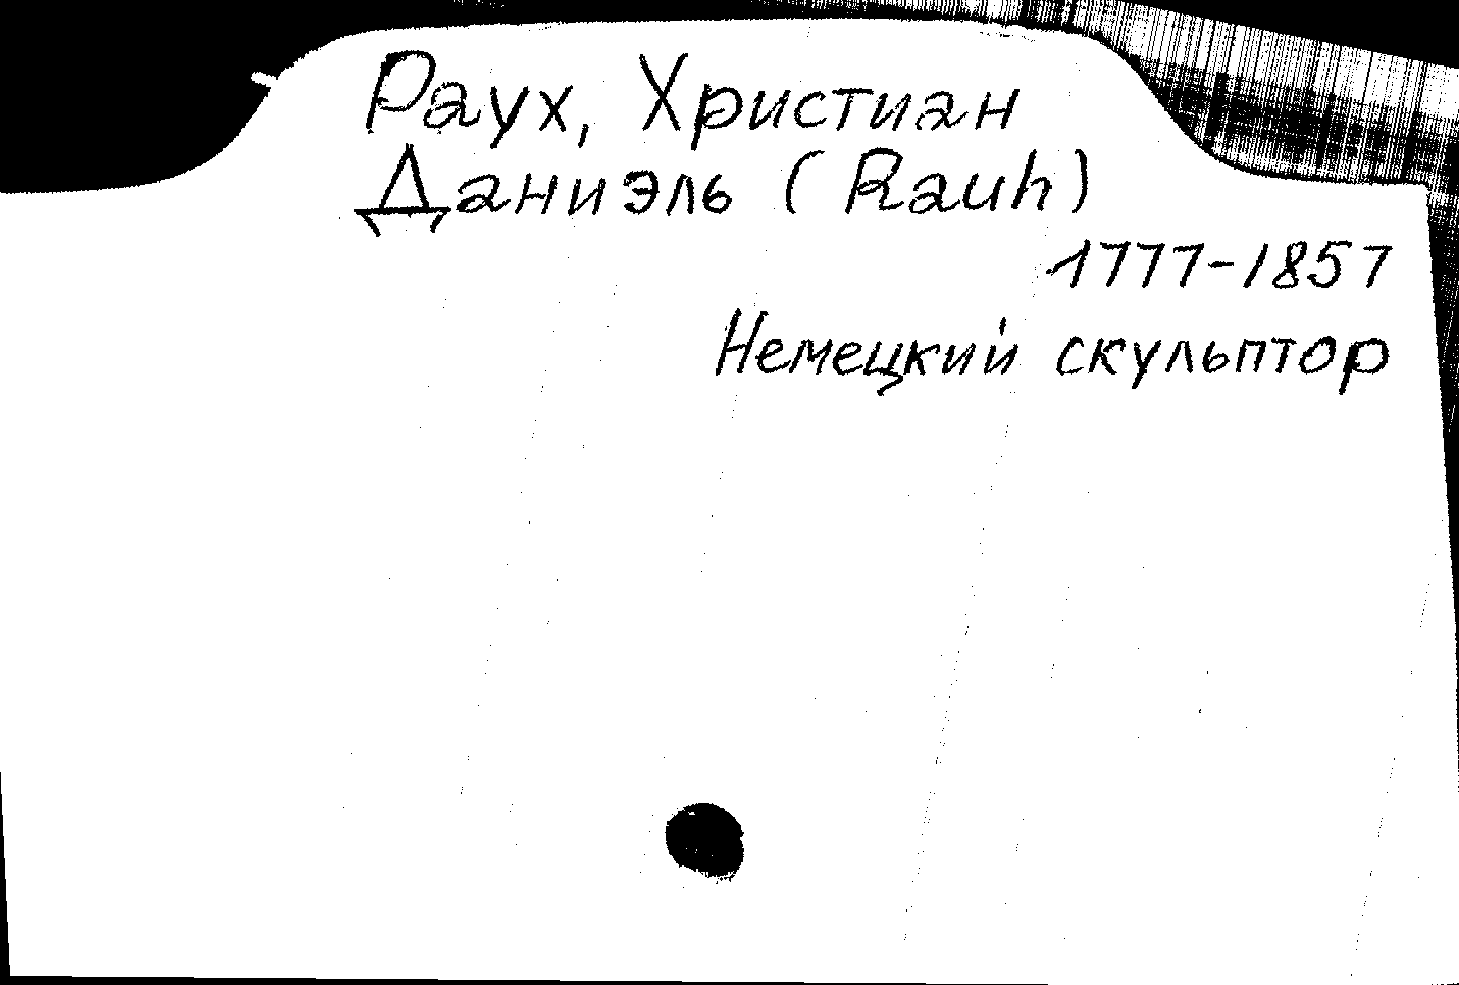 Раух, Христиан
Даниэль (Rauh)
1777-1857
Немецкий скульптор